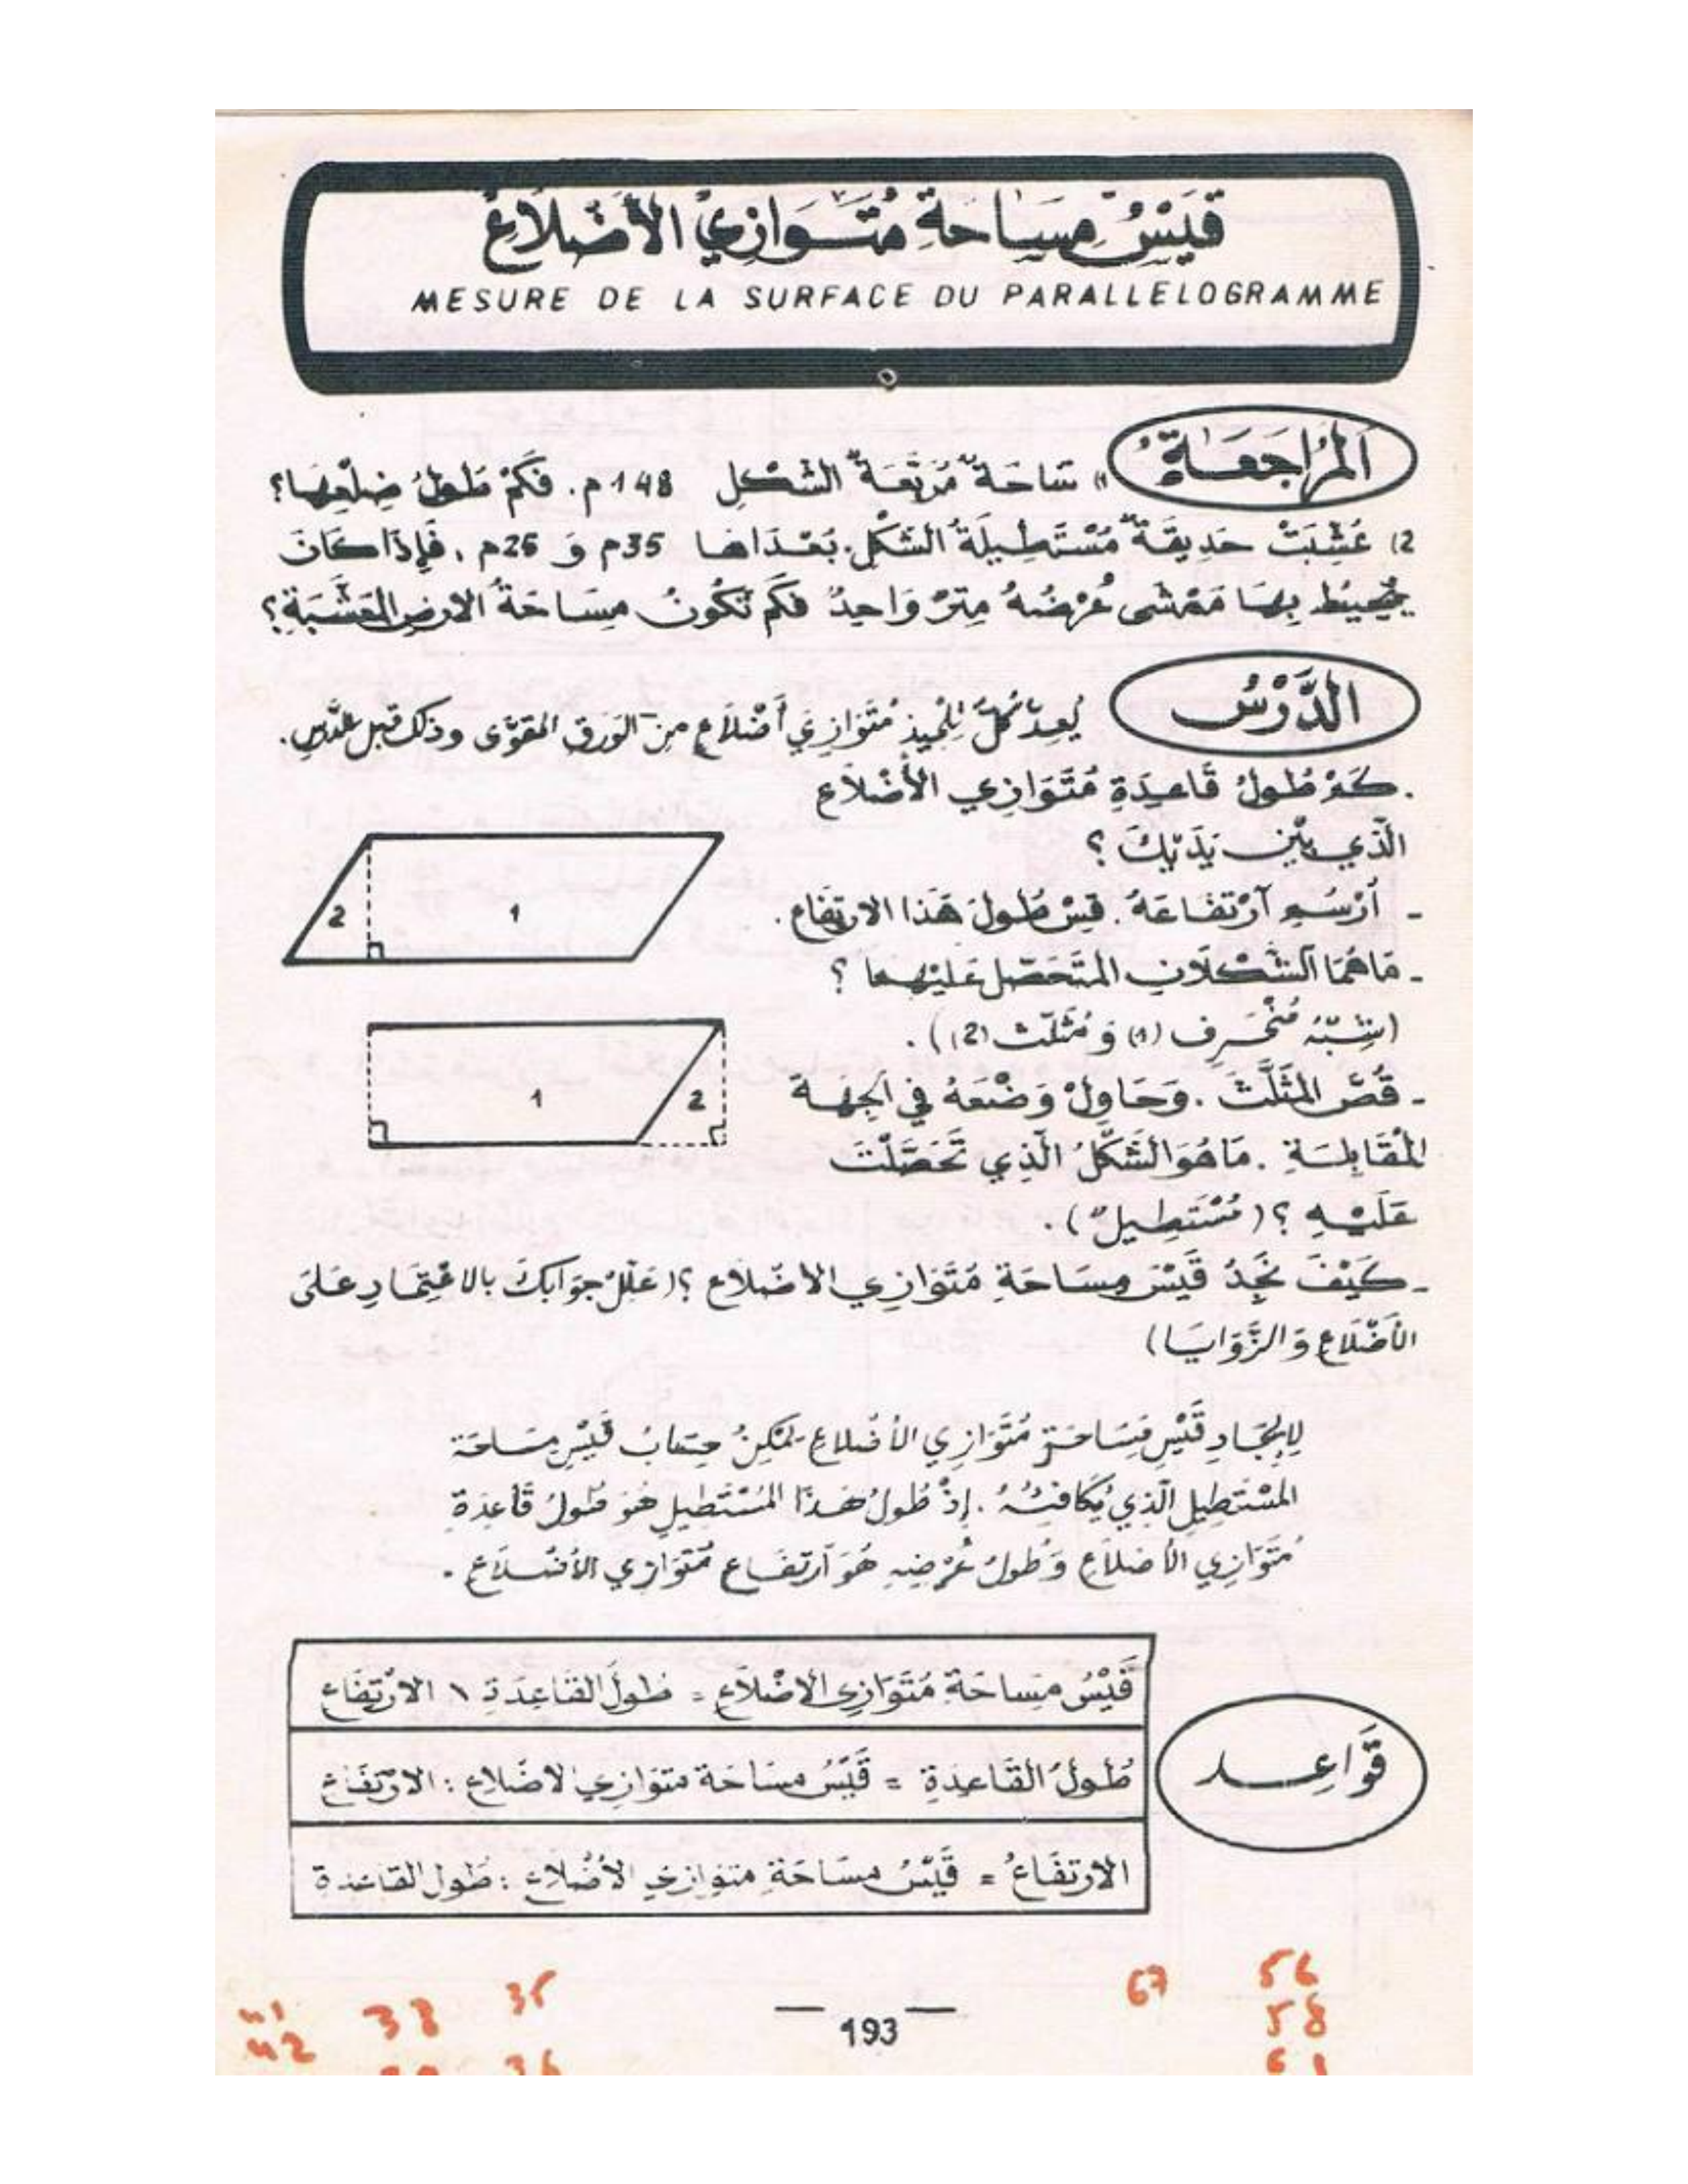 قَيْسُ مِسَاحَةِ مُتَوَازِي الأَضْلاَعِ
MESURE DE LA SURFACE DU PARALLELOGRAMME
اَلْمُرَاجَعَةُ
1) سَاحَةٌ مُرَبَّعَةُ الشَّكْلِ 148 م. فَكَمْ طُولُ ضِلْعِهَا؟
2) عُشِّبَتْ حَدِيقَةٌ مُسْتَطِيلَةُ الشَّكْلِ. بُعْدَاهَا 35م وَ 26م. فَإِذَا كَانَ
يُحِيطُ بِهَا مَمْشَى عُرْضُهُ مِتْرٌ وَاحِدٌ فَكَمْ تَكُونُ مِسَاحَةُ الارضِ المُعَشَّبَةِ؟
الدَّرْسُ
يُعِدُّ كُلُّ تِلْمِيذٍ مُتَوَازِيَ أَضْلاَعٍ مِنَ الوَرَقِ المُقَوَّى وذلك قبل الدَّرسِ.
. كَمْ طُولُ قَاعِدَةِ مُتَوَازِي الأَضْلاَعِ
الَّذِي بَيْنَ يَدَيْكَ ؟
- اُرْسُمِ آرْتِفَاعَهُ. قِسْ طُولَ هَذَا الارتِفَاعِ.
- مَا هُمَا الشَّكْلاَنِ المُتَحَصَّلُ عَلَيْهِمَا ؟
(شِبْهُ مُنْحَرِفٍ (1) وَ مُثَلَّث (2)).
- قُصَّ المُثَلَّثَ. وَحَاوِلْ وَضْعَهُ فِي الجِهَةِ
المُقَابِلَةِ. مَا هُوَ الشَّكْلُ الَّذِي تَحَصَّلْتَ
عَلَيْهِ ؟ (مُسْتَطِيلٌ).
- كَيْفَ نَجِدُ قَيْسَ مِسَاحَةِ مُتَوَازِي الأَضْلاَعِ ؟ (عَلِّلْ جَوَابَكَ بالاعْتِمَادِ عَلَى
الأَضْلاَعِ وَ الزَّوَايَا)
2
1
1
2
لِإِيجَادِ قَيْسِ مِسَاحَةِ مُتَوَازِي الأَضْلاعِ يُمْكِنُ حِسَابُ قَيْسِ مِسَاحَة
المُسْتَطِيلِ الَّذِي يُكَافِئُهُ. إِذْ طُولُ هَذَا المُسْتَطِيلِ هُوَ طُولُ قَاعِدَةِ
مُتَوَازِي الأَضْلاَعِ وَطُولُ عُرْضِهِ هُوَ آرْتِفَاع مُتَوَازِي الأَضْلاَعِ.
قَيْسُ مِسَاحَةِ مُتَوَازِي الأَضْلاَعِ = طُولُ القَاعِدَةِ \ الارْتِفَاع
قَوَاعِد
طُولُ القَاعِدَةِ = قَيْسُ مِسَاحَة متوَازي الأَضْلاَع : الارْتِفَاع
الارْتِفَاعُ = قَيْسُ مِسَاحَةِ متوازي الأَضْلاَعِ : طُول القَاعدة
193
35
38
41
42
36
67
56
58
61